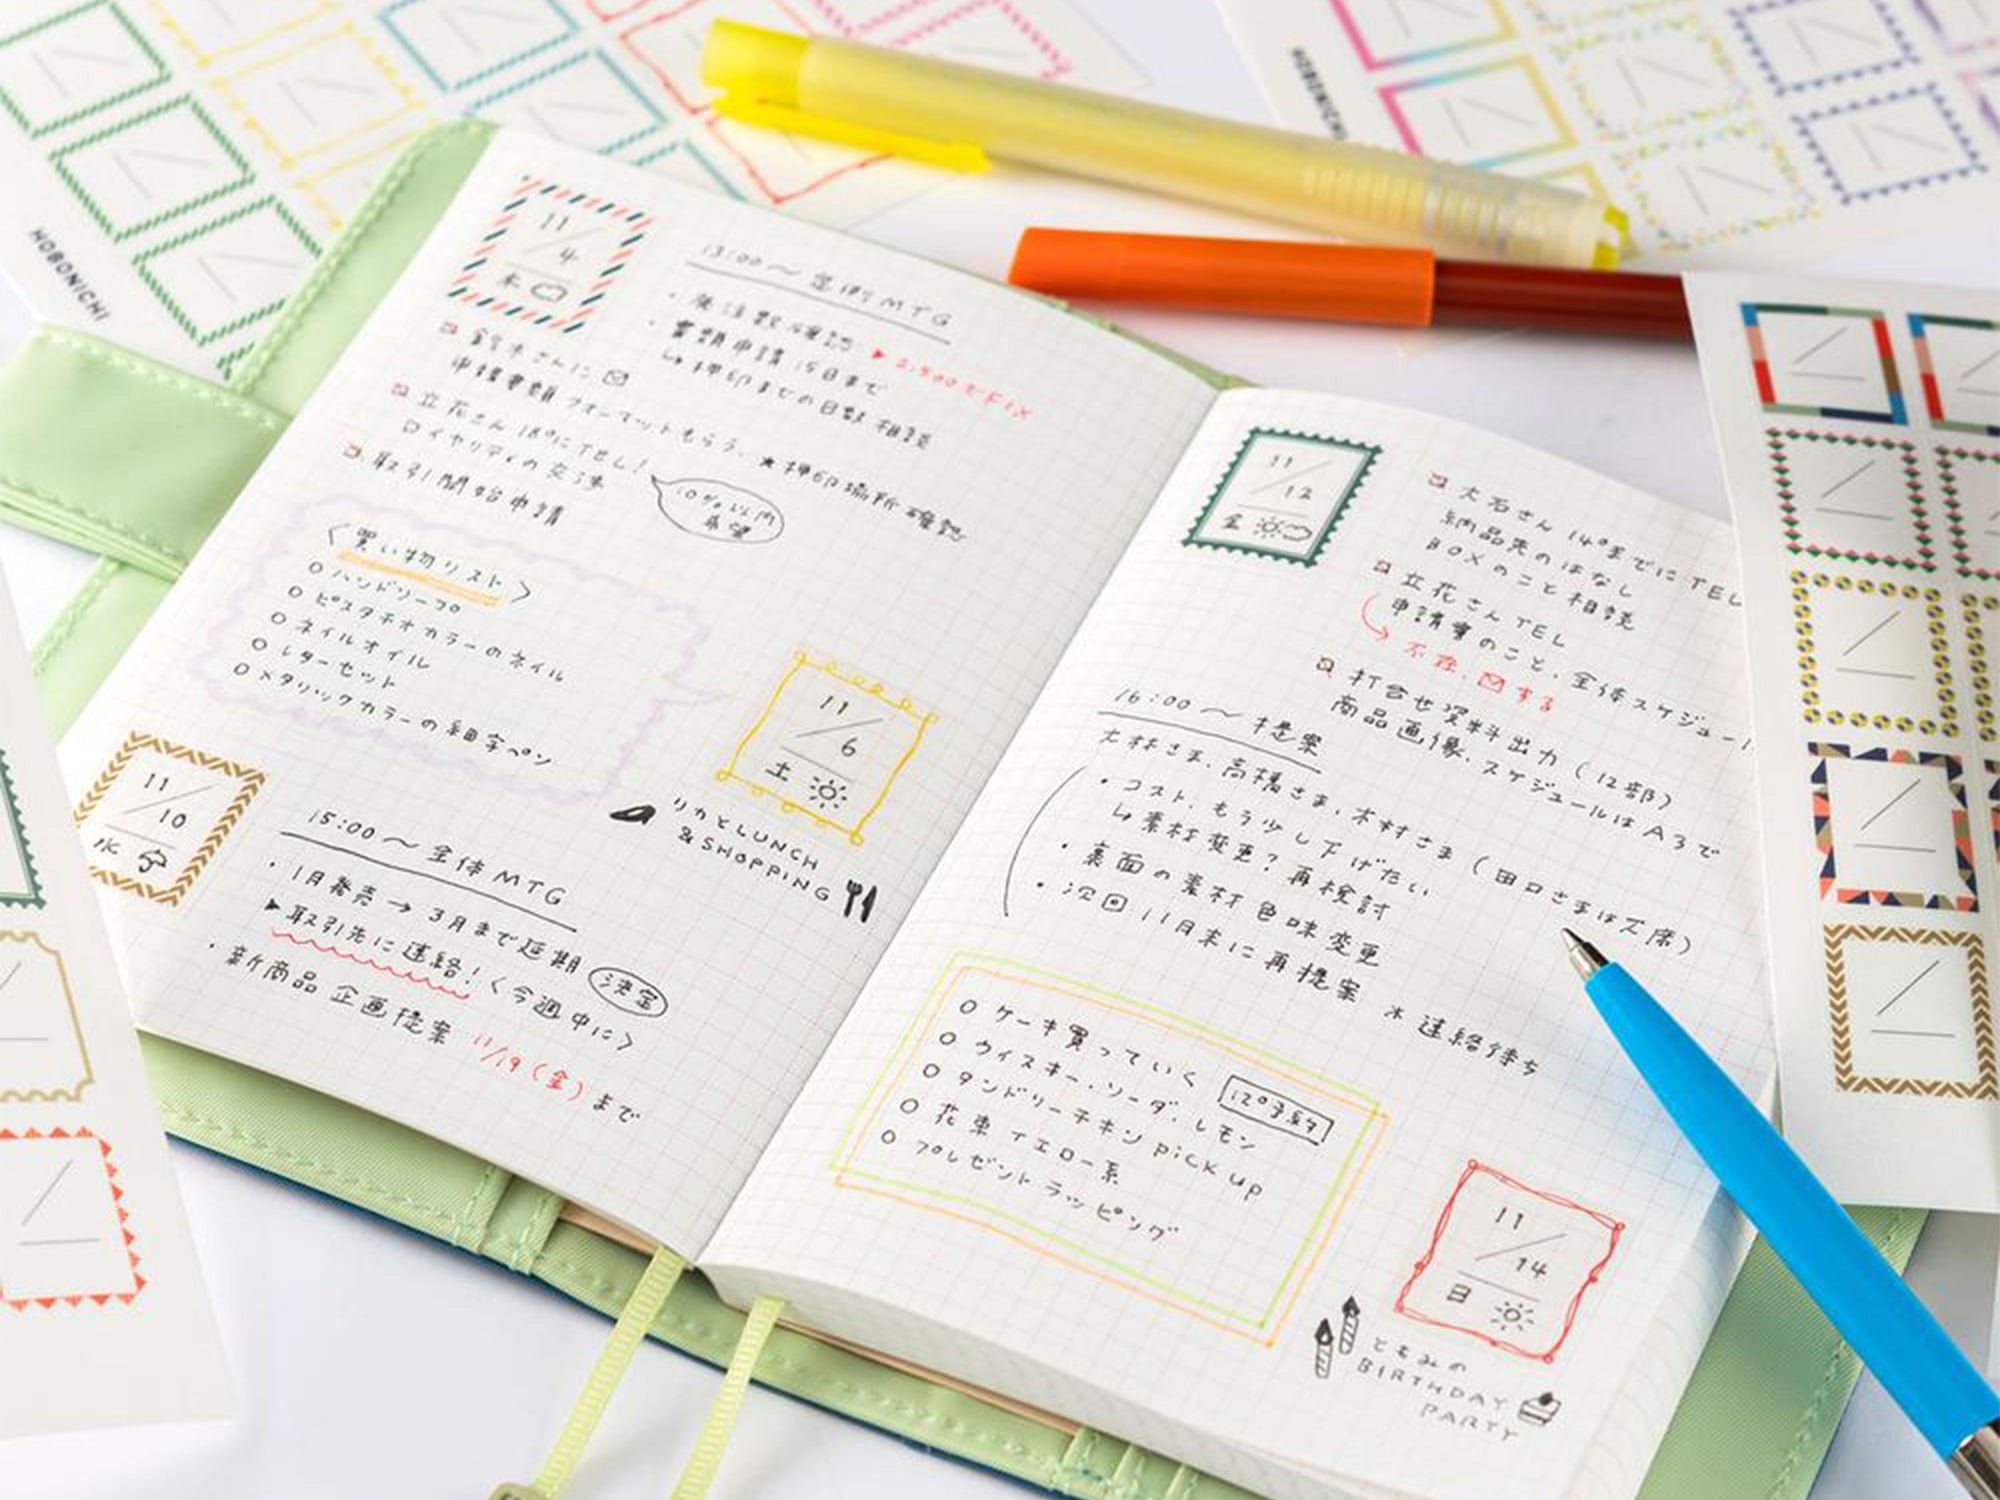 HOBONICHI
HOBONICHI
11/4
木
13:00〜 定例MTG
・発注数確認 ▶ 2,500でFIX
・書類申請 15日まで
↳ 押印までの日数 相談
鈴木さんに
申請書類 フォーマットもらう. ★押印場所 確認
立花さん 18°にTEL!
ロイヤリティの交渉
10%以内
希望
取引開始申請
〈買い物リスト〉
○ ハンドソープ
○ ピスタチオカラーのネイル
○ ネイルオイル
○ レターセット
○ メタリックカラーの細字ペン
11/6
土
リカとLUNCH
&SHOPPING
11/10
水
15:00〜 全体MTG
・1月発売 → 3月まで延期 決定
▶取引先に連絡! 〈今週中に〉
・新商品 企画提案 11/19(金)まで
11/12
金
大石さん 14°までにTEL
納品先のはなし
BOXのこと相談
立花さん TEL
申請書のこと, 全体スケジュール
不在, する
打合せ資料出力 (12部)
商品画像, スケジュールはA3で
16:00〜 提案
大林さま, 高橋さま, 木村さま (田口さまは欠席)
・コスト, もう少し下げたい
↳ 素材変更? 再検討
・裏面の素材 色味 変更
・次回 11月末に再提案 *連絡待ち
○ ケーキ買っていく 12°予約
○ ウイスキー, ソーダ, レモン
○ タンドリーチキン pick up
○ 花束 イエロー系
○ プレゼントラッピング
11/14
日
ともみの
BIRTHDAY
PARTY